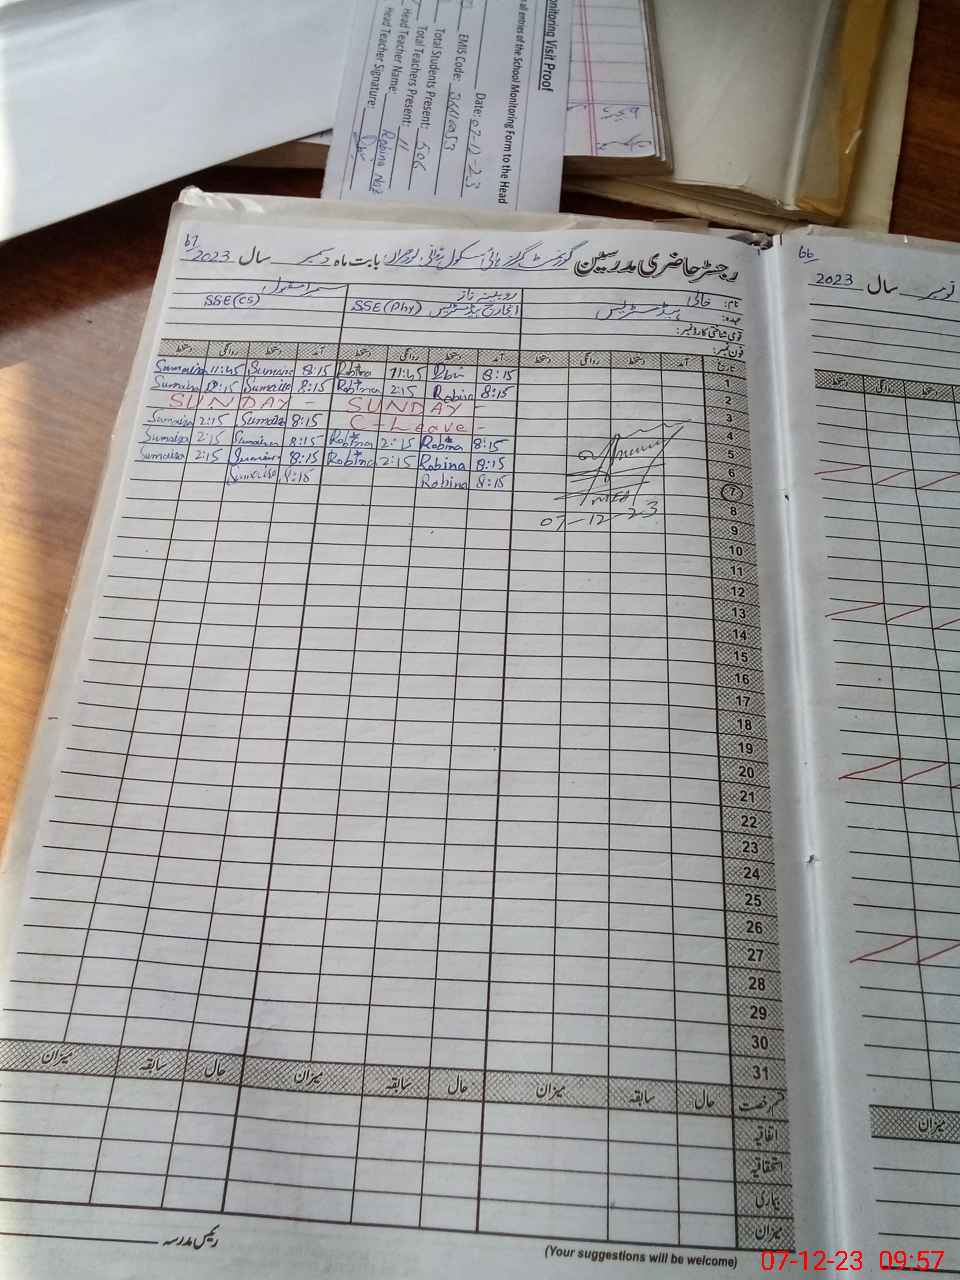 Monitoring Visit Proof
all entries of the School Monitoring Form to the Head
Date: 07-12-23
EMIS Code:
Total Students Present: 506
Total Teachers Present: 11
Head Teacher Name: Robina Naz
Head Teacher Signature:
67
رجسٹر حاضری مدرسین گورنمنٹ گرلز ہائی سکول لودھراں بابت ماہ دسمبر سال 2023
66
نومبر سال 2023
نام: خالی روبینہ ناز سمیرا مقبول
عہدہ: ہیڈمسٹریس انچارج ہیڈمسٹریس SSE(Phy) SSE(CS)
قومی شناختی کارڈ نمبر:
فون نمبر:
تاریخ آمد دستخط روانگی دستخط آمد دستخط روانگی دستخط آمد دستخط روانگی دستخط
دستخط روانگی دستخط
Sumaisa 11:45 Sumaisa 8:15 Robina 11:45 8:15 1
Sumaisa 12:15 Sumaisa 8:15 Robina 2:15 Robina 8:15 2
SUNDAY - SUNDAY - 3
Sumaisa 2:15 Sumaisa 8:15 C-Leave - 4
Sumaisa 2:15 Sumaisa 8:15 Robina 2:15 Robina 8:15 5
Sumaisa 2:15 Sumaisa 8:15 Robina 2:15 Robina 8:15 6
Sumaisa 8:15 Robina 8:15 7
MEA 8
07-12-23 9
10
11
12
13
14
15
16
17
18
19
20
21
22
23
24
25
26
27
28
29
30
31
قسم رخصت حال سابقہ میزان حال سابقہ میزان حال سابقہ میزان
میزان
اتفاقیہ
استحقاقیہ
بیماری
میزان
رئیس مدرسہ
(Your suggestions will be welcome)
07-12-23 09:57